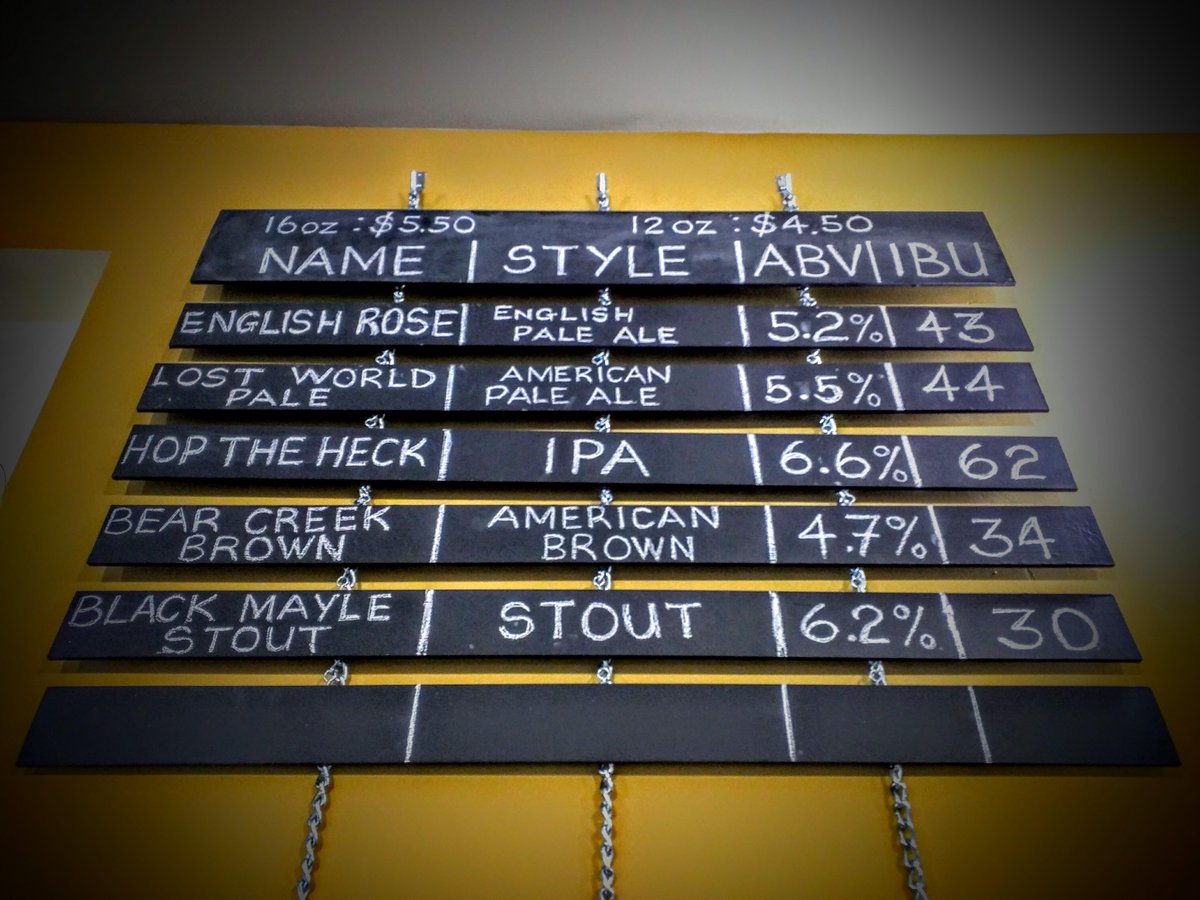 16oz : $5.50 12oz : $4.50
NAME | STYLE | ABV | IBU
ENGLISH ROSE | ENGLISH
PALE ALE | 5.2% | 43
LOST WORLD
PALE | AMERICAN
PALE ALE | 5.5% | 44
HOP THE HECK | IPA | 6.6% | 62
BEAR CREEK
BROWN | AMERICAN
BROWN | 4.7% | 34
BLACK MAYLE
STOUT | STOUT | 6.2% | 30